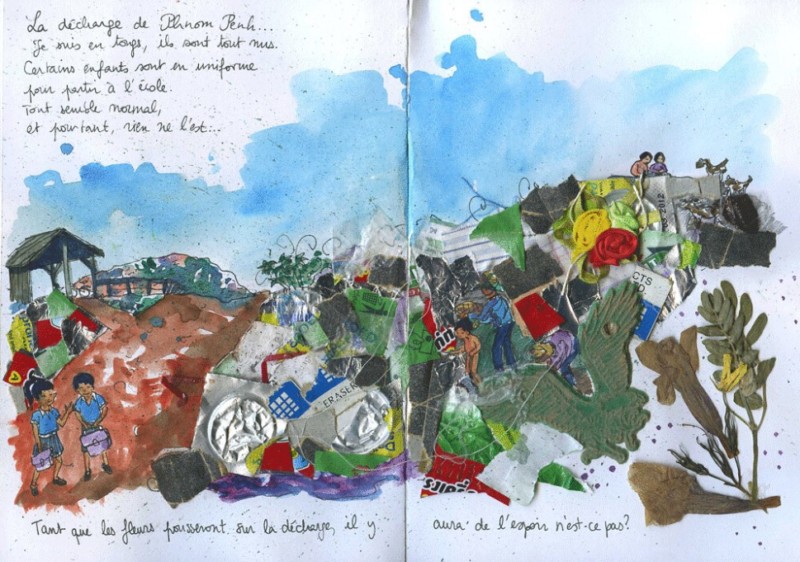 La décharge de Phnom Penh...
Je suis en tongs, ils sont tout nus.
Certains enfants sont en uniforme
pour partir à l'école.
Tout semble normal,
et pourtant, rien ne l'est...
2012
CTS
ERASER
Tant que les fleurs pousseront sur la décharge, il y aura de l'espoir n'est-ce pas?